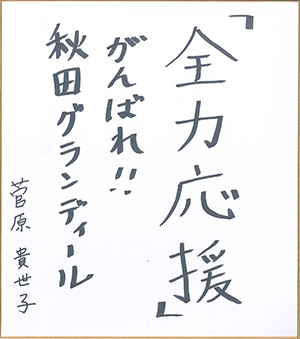 「全力応援」
がんばれ!!
秋田グランディール
菅原 貴世子